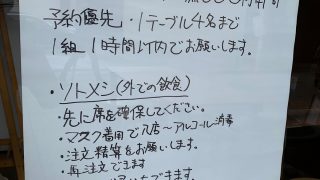 予約優先・1テーブル4名まで
1組 1時間以内でお願いします。
・ソトメシ(外での飲食)
・先に席を確保してください。
・マスク着用で入店〜アルコール消毒
・注文精算をお願いします。
・再注文できます